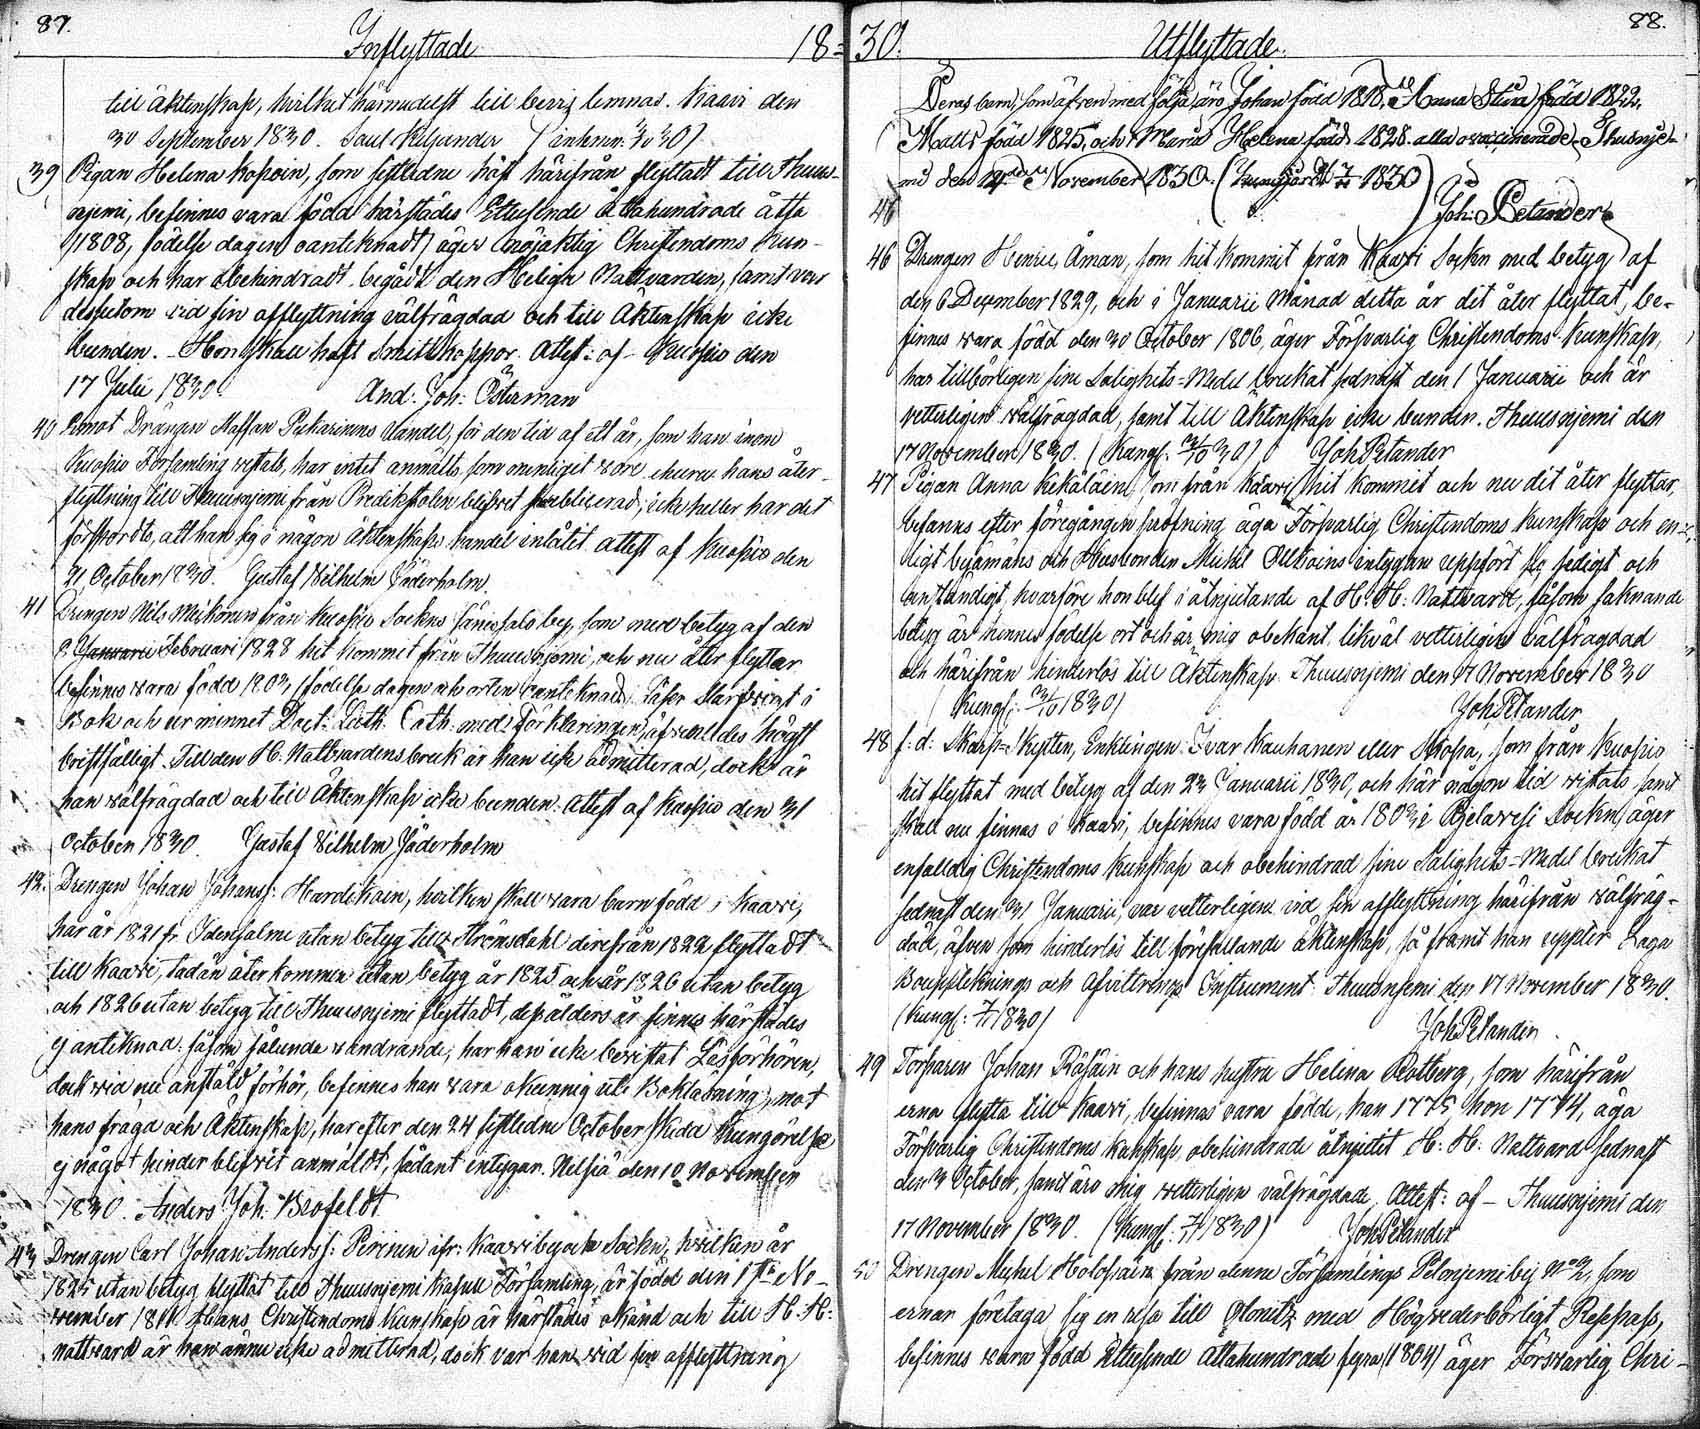 87.
Inflyttade
18=
till Äktenskap, hvilket härmedelst till bevis lemnas. Kaavi den
30 September 1830. Saul Kiljander
39 Pigan Helena Kosoin, som sistledne höst härifrån flyttadt till Thuus-
njemi, befinnes vara född härstädes Ettusende Åttahundrade åtta
(1808, födelse dagen oanteknadt) äger nöjaktig Christendoms Kun-
skap och har obehindradt begådt den Heliga Nattvarden, samt var
dessutom vid sin afflyttning välfrägdad och till Äktenskap icke
bunden. Hon skall haft Smittkoppor. Attest: af Kuopio den
17 Julii 1830. And. Joh: Österman
40 Emot Drängen Staffan Pukarinens Vandel, för den tid af ett år, som han inom
Kuopio Församling vistats, har intet anmälts, som menligit vore, ehuru hans åter-
flyttning till Thuusnjemi från Predikstolen blifvit publicerad; icke heller har det
försports, att han sig i någon Äktenskaps handel inlåtit. Attest af Kuopio den
21 October 1830. Gustaf Vilhelm Jäderholm.
41 Drengen Nils Miskonen från Kuopio Sockns Jänissalo by, som med betyg af den
9 Januarii Februari 1828 hit kommit från Thuusnjemi, och nu åter flyttar
befinnes vara född 1803, (födelse dagen och orten oanteknad) läser Starfvint i
Bok och ur minnet Doct: Luth. Cath. med Förklaringen, äfvenledes högst
bristfälligt. Till den H. Nattvardens bruk är han icke admitterad, dock är
han välfrägdad och till Äktenskap icke bunden. Attest af Kuopio den 31
October 1830. Gustaf Vilhelm Jäderholm
42. Drengen Johan Johanss: Hardikain, hvilken skall vara barnfödd i Kaavi,
har år 1821 fr. Idensalmi utan betyg till Strömsdahl derefrån 1822 flyttadt
till Kaavi, dädan åter kommen utan betyg år 1825 och år 1826 utan betyg
och 1826 utan betyg till Thuusnjemi flyttadt, dess ålders år finnes härstädes
ej anteknad: såsom sålunda vandrande, har han icke bevistat Läsförhören,
dock vid nu anstäldt förhör, befinnes han vara okunnig uti Bokläsning, mot
hans frägd och Äktenskap, har efter den 24 sistledne October skedd Kungörelse
ej något hinder blifvit anmäldt, sådant intygar. Nilsiä den 10 November
1830. Anders Joh. Brofeldt
43 Drengen Carl Johan Anderss: Pirinen ifr: Kaavi by och Sockn, hvilken år
1825 utan betyg flyttat till Thuusnjemi Kapell Församling, är född den 1sta No-
vember 1811. Hans Christendoms Kunskap är härstädes okänd och till H. H:
nattvard är han ännu icke admitterad, dock var han vid sin afflyttning
30.
Utflyttade.
88.
Deras barn, som äfven med följa, äro Johan född 1818, Anna Stina född 1822.
Matts född 1825, och Maria Helena född 1828. alla ovaccinerade. Thusnje-
mi den November 1830. (Kungjordt 1830)
Joh: Petander
46 Drengen Henric Åman, som hit kommit från Kaavi Sockn med betyg af
den 6 December 1829, och i Januarii Månad detta år dit åter flyttat, be-
finnes vara född den 30 October 1806, äger Försvarlig Christendoms Kunskap,
har tillbörligen sine Salighets=Medel brukat sednast den 1 Januarii och är
vetterligen välfrägdad, samt till Äktenskap icke bunden. Thuusnjemi den
17 November 1830. Joh Petander
47 Pigan Anna Kekäläin, som från Kaavi hit kommit och nu dit åter flyttar,
befanns efter föregången pröfning, äga Försvarlig Christendoms Kunskap och en-
ligt byamäns och Husbonden Michel Ollikains intygan uppfört sig sedigt och
anständigt, hvarföre hon blef i åtnjutande af H. H. Nattvard, såsom saknande
betyg är hennes födelse ort och år mig obekant, likväl vetterligen välfrägdad
och härifrån hinderlös till Äktenskap. Thuusnjemi den 17 November 1830
Joh Petander
48 f: d: Skarp=Skytten, Enklingen Ivar Kauhanen eller Stopa, som från Kuopio
hit flyttat med betyg af den 23 Januarii 1830, och här någon tid vistats samt
skall nu finnas i Kaavi, befinnes vara född år 1803 i Pjelavesi Sockn, äger
enfaldig Christendoms Kunskap och obehindrad sine Salighets=Medel brukat
sednast den 31 Januarii, var vetterligen vid sin afflyttning härifrån välfräg-
dad, äfven som hinderlös till förefallande äktenskap, så framt han uppter laga
Bouppteknings och Afvittrings Instrument. Thuusnjemi den 17 November 1830.
Joh Petander
49 Torparen Johan Räsäin och hans hustru Helena Rotberg, som härifrån
erna flytta till Kaavi, befinnas vara födde, han 1775 hon 1774, äga
Försvarlig Christendoms kunskap, obehindrade åtnjutit H: H: Nattvard sednast
den 3 October, samt äro mig vetterligen välfrägdade. Attest: af Thuusnjemi den
17 November 1830. Joh Petander
50 Drengen Michel Holopain från denne Församlings Pelonjemi by No 2, som
ernar företaga sig en resa till Olonitz med Högvederbörligt Respass,
befinnes vara född Ettusende Åttahundrade fyra (1804) äger Försvarlig Chri-